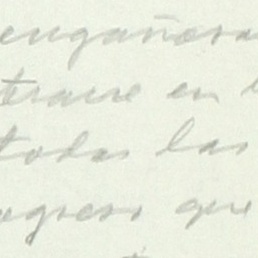 engañosa
terarse en
todas las
ogreso que